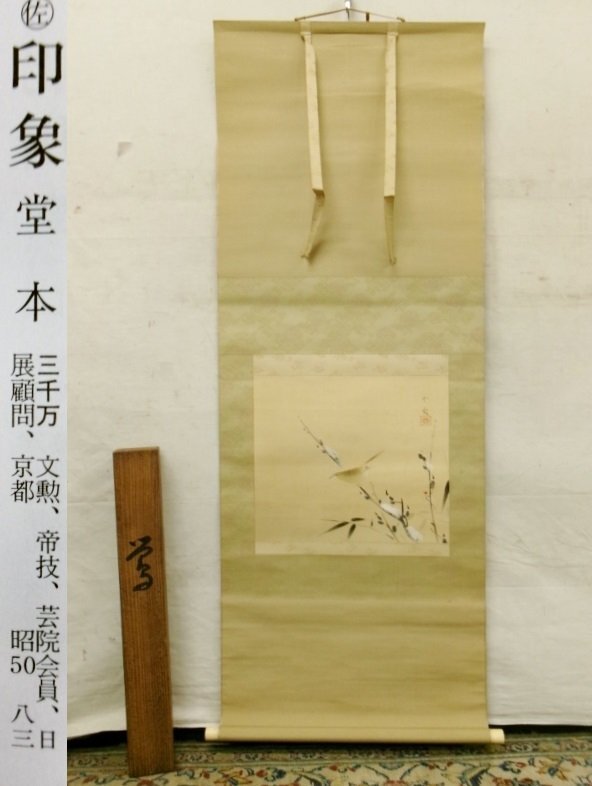 佐
印象
堂本
三千万 文勲、帝技、芸院会員、日
展顧問、京都 昭50 八三
鶯